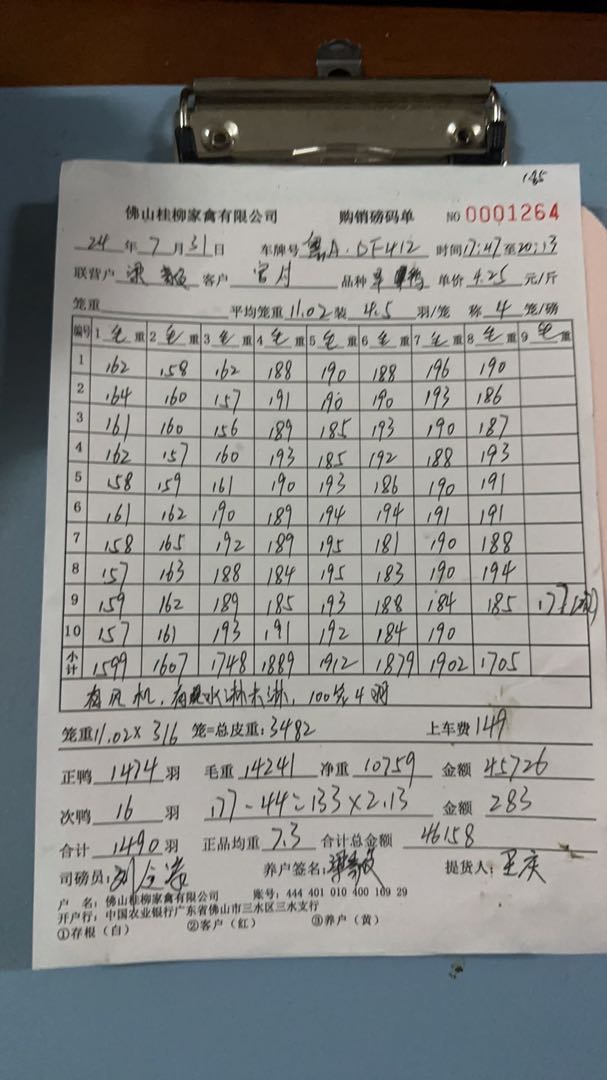 1.85
佛山桂柳家禽有限公司 购销磅码单 NO 0001264
24 年 7 月 31 日 车牌号 DF412 时间 17:47 至 20:13
联营户 梁 客户 官月 品种 单价 4.25 元/斤
笼重 平均笼重 11.02 装 4.5 羽/笼 称 4 笼/磅
编号 1 毛 重 2 毛 重 3 毛 重 4 毛 重 5 毛 重 6 毛 重 7 毛 重 8 毛 重 9 毛 重
1 162 158 162 188 190 188 196 190
2 164 160 157 191 190 190 193 186
3 161 160 156 189 185 193 190 187
4 162 157 160 193 185 192 188 193
5 158 159 161 190 193 186 190 191
6 161 162 190 189 194 194 191 191
7 158 165 192 189 195 181 190 188
8 157 163 188 184 195 183 190 194
9 159 162 189 185 193 188 184 185 177
10 157 161 193 191 192 184 190
小计 1599 1607 1748 1889 1912 1879 1902 1705
有风机, 水淋未淋, 100 4羽
笼重 11.02 × 316 笼=总皮重: 3482 上车费 149
正鸭 1474 羽 毛重 14241 净重 10759 金额 45726
次鸭 16 羽 177 - 44 = 133 × 2.13 金额 283
合计 1490 羽 正品均重 7.3 合计总金额 46158
司磅员: 刘 养户签名: 梁 提货人:
户 名: 佛山桂柳家禽有限公司 账号: 444 401 010 400 109 29
开户行: 中国农业银行广东省佛山市三水区三水支行
①存根(白) ②客户(红) ③养户(黄)